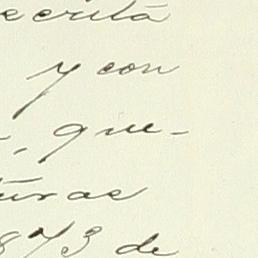 ecrita
y con
, que-
uras
873 de